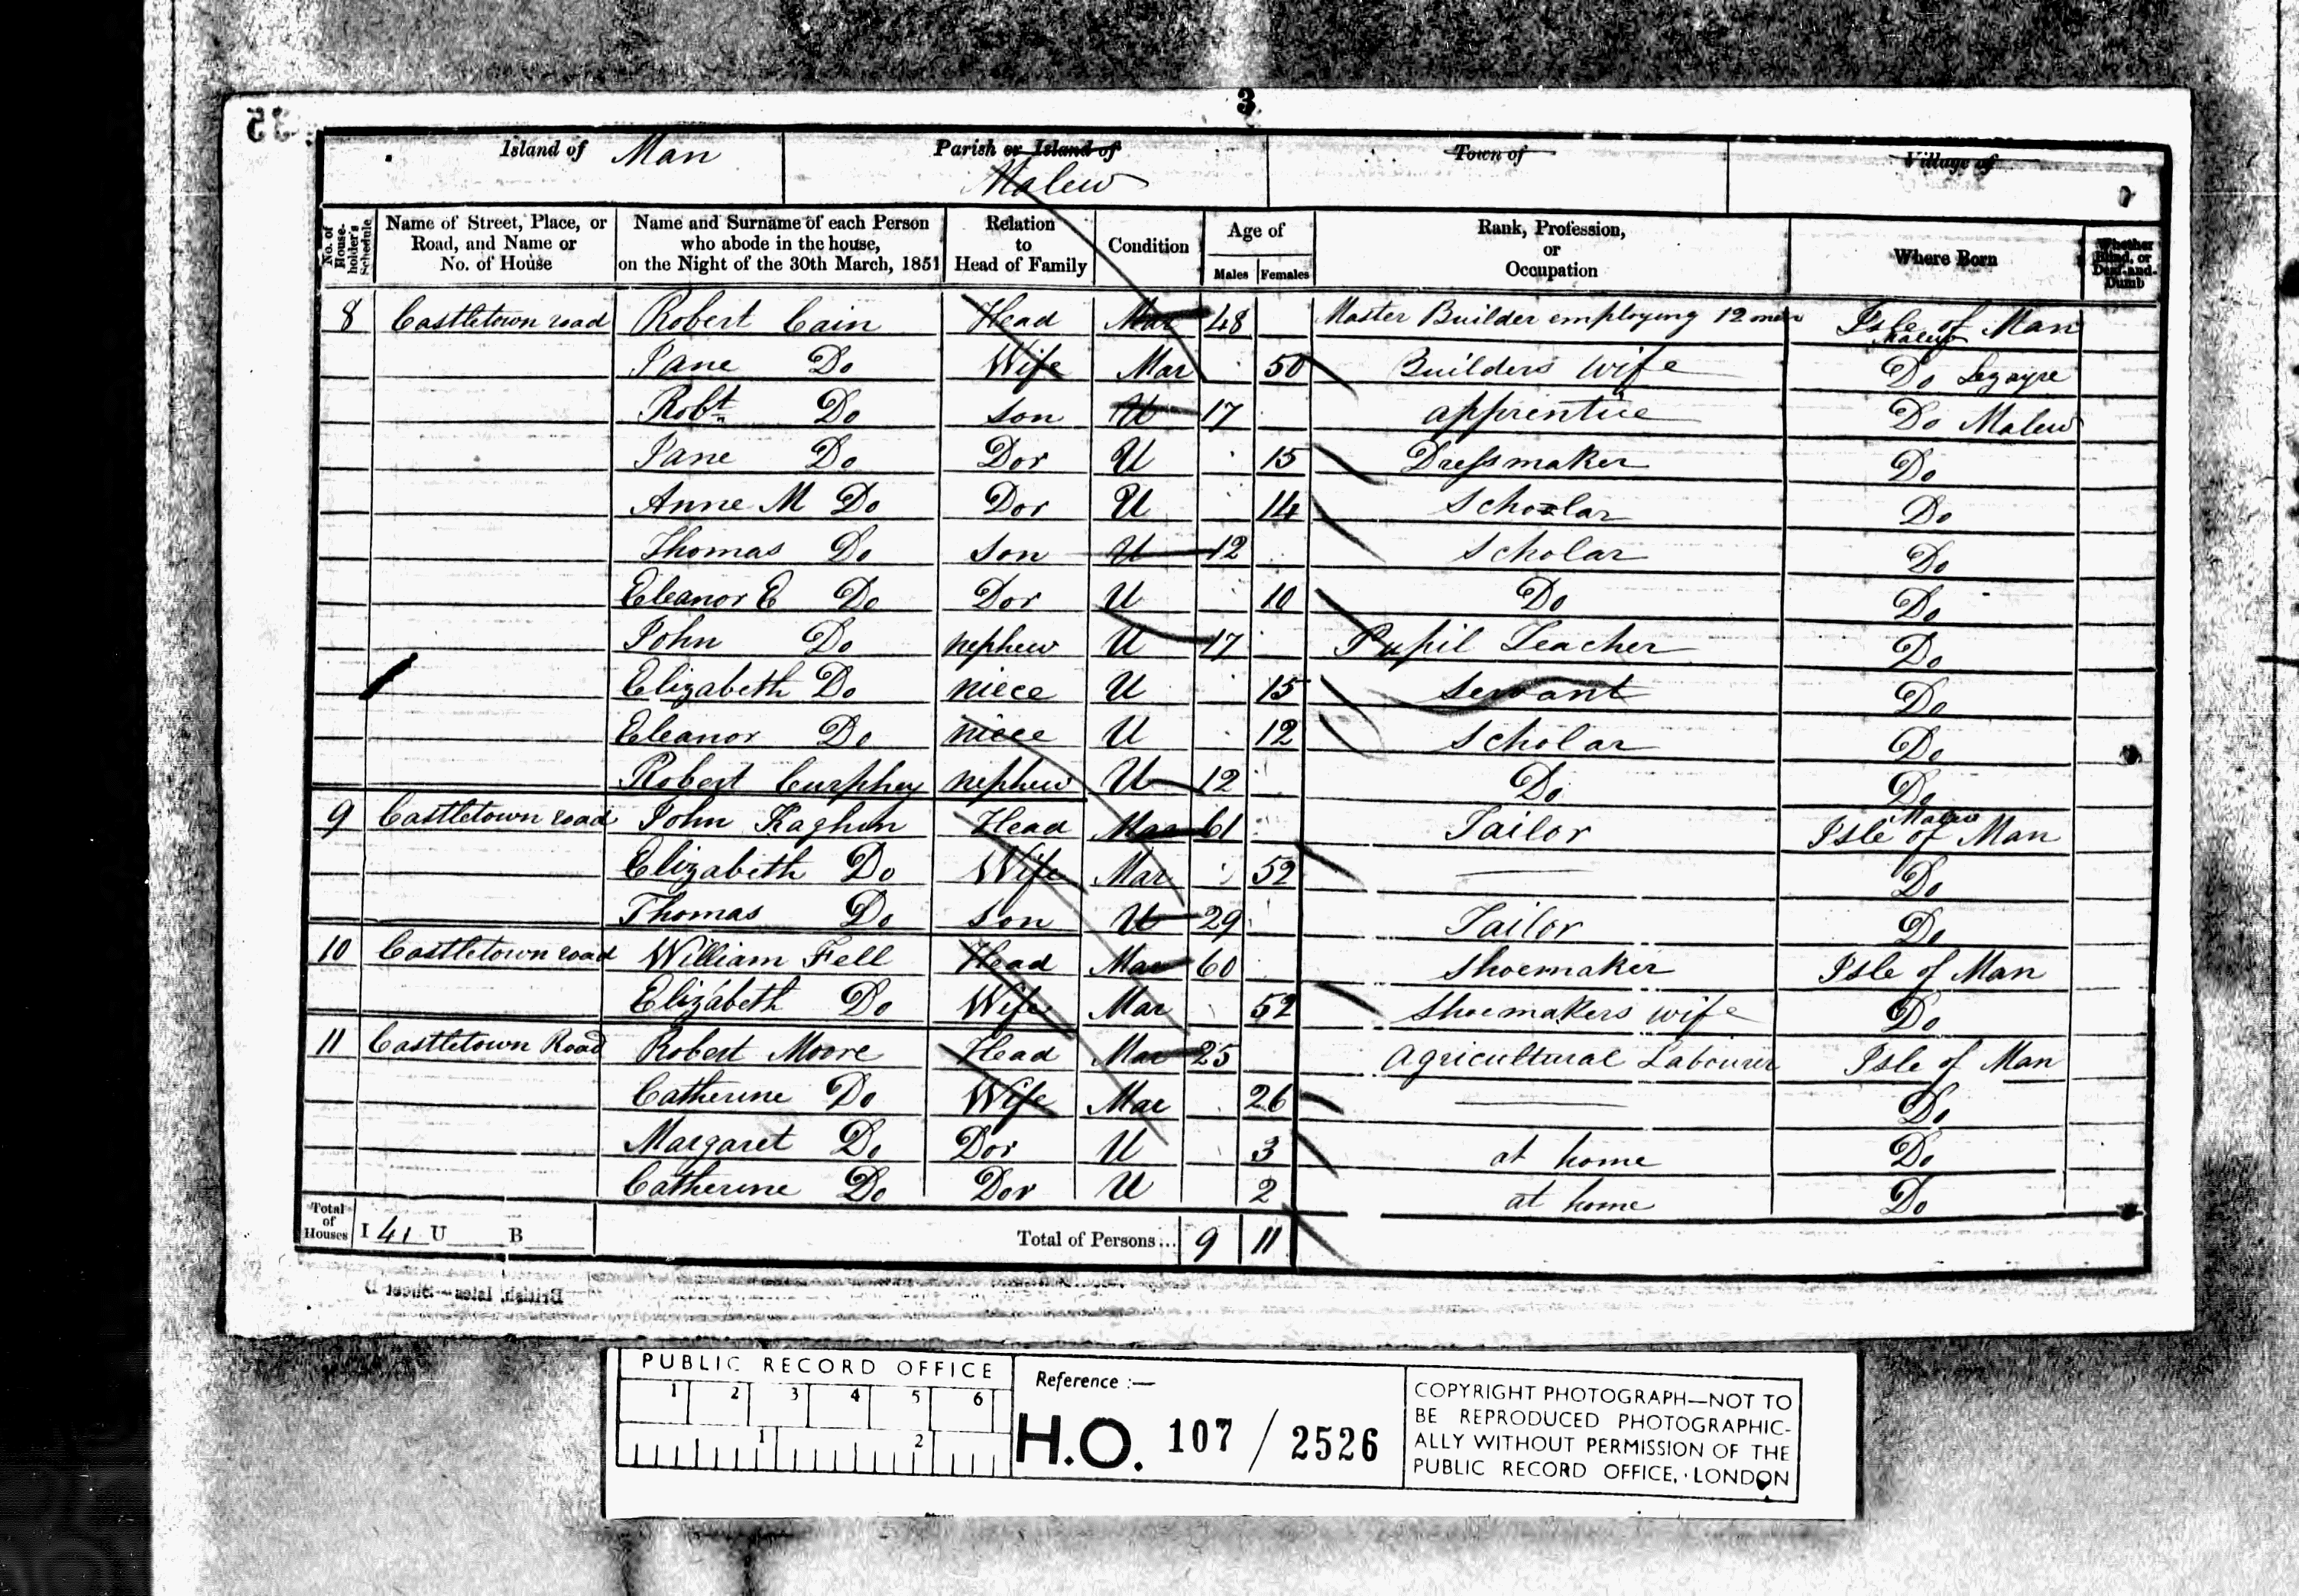 3
35
Island of Man Parish or Island of Malew Town of Village of
No. of House-holder's Schedule Name of Street, Place, or Road, and Name or No. of House Name and Surname of each Person who abode in the house, on the Night of the 30th March, 1851 Relation to Head of Family Condition Age of Males Females Rank, Profession, or Occupation Where Born Whether Blind, or Deaf-and-Dumb
8 Castletown road Robert Cain Head Mar 48 Master Builder employing 12 men Isle of Man Malew
Jane Do Wife Mar 50 Builders wife Do Lezayre
Robt Do son U 17 apprentice Do Malew
Jane Do Dor U 15 Dressmaker Do
Anne M Do Dor U 14 Scholar Do
Thomas Do son U 12 Scholar Do
Eleanor E Do Dor U 10 Do Do
John Do nephew U 17 Pupil Teacher Do
Elizabeth Do niece U 15 Servant Do
Eleanor Do niece U 12 Scholar Do
Robert Curphey nephew U 12 Do Do
9 Castletown road John Kaghin Head Mar 61 Tailor Isle of Man Malew
Elizabeth Do Wife Mar 52 — Do
Thomas Do son U 29 Tailor Do
10 Castletown road William Fell Head Mar 60 Shoemaker Isle of Man
Elizabeth Do Wife Mar 52 Shoemakers wife Do
11 Castletown Road Robert Moore Head Mar 25 Agricultural Labourer Isle of Man
Catherine Do Wife Mar 26 — Do
Margaret Do Dor U 3 at home Do
Catherine Do Dor U 2 at home Do
Total of Houses I 41 U B Total of Persons... 9 11
British Isles—Sheet D
PUBLIC RECORD OFFICE
1 2 3 4 5 6
1 2
Reference :—
H.O. 107 / 2526
COPYRIGHT PHOTOGRAPH—NOT TO
BE REPRODUCED PHOTOGRAPHIC-
ALLY WITHOUT PERMISSION OF THE
PUBLIC RECORD OFFICE, LONDON